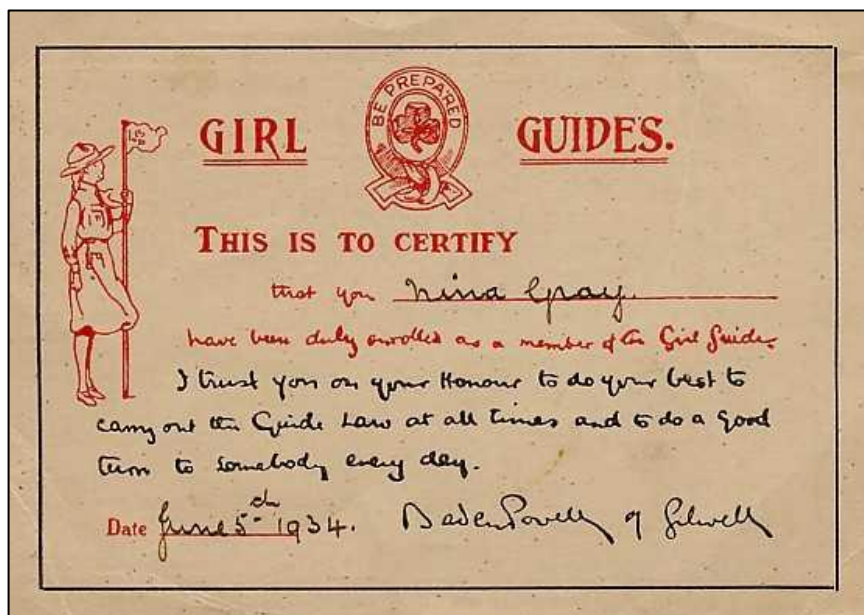 BE PREPARED
GIRL GUIDES.
THIS IS TO CERTIFY
that you Nina Gray.
have been duly enrolled as a member of the Girl Guides.
I trust you on your Honour to do your best to
carry out the Guide Law at all times and to do a good
turn to somebody every day.
Date June 5th 1934. Baden Powell of Gilwell